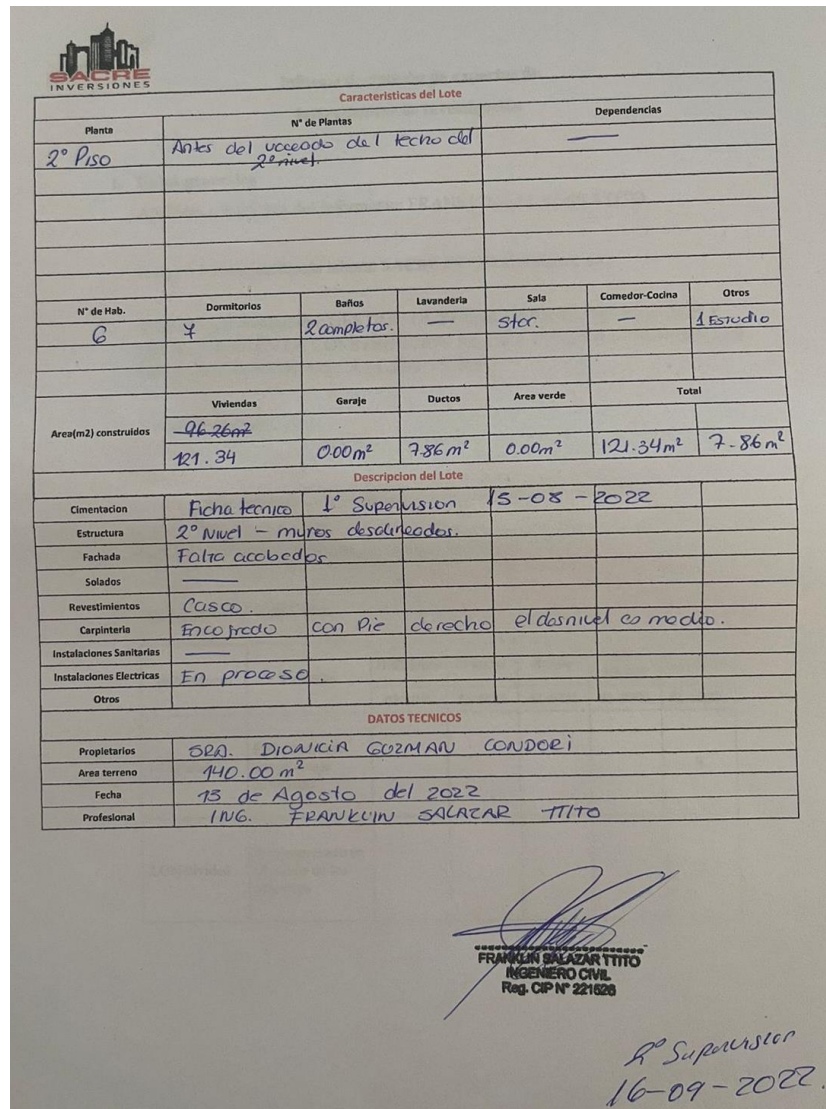 SACRE
INVERSIONES
Caracteristicas del Lote
Planta N° de Plantas Dependencias
2° Piso Antes del vaceado del techo del —
2° nivel.
N° de Hab. Dormitorios Baños Lavanderia Sala Comedor-Cocina Otros
6 7 2 completos. — Star. — 1 Estudio
Area(m2) construidos Viviendas Garaje Ductos Area verde Total
96.26m²
121.34 0.00m² 7.86m² 0.00m² 121.34m² 7.86m²
Descripcion del Lote
Cimentacion Ficha tecnico 1° Supervision 15-08-2022
Estructura 2° Nivel - muros desalineados.
Fachada Falta acabados
Solados —
Revestimientos Casco.
Carpinteria Encofrado con Pie derecho el desnivel es medio.
Instalaciones Sanitarias —
Instalaciones Electricas En proceso.
Otros
DATOS TECNICOS
Propietarios SRA. DIONICIA GUZMAN CONDORI
Area terreno 140.00 m²
Fecha 15 de Agosto del 2022
Profesional ING. FRANKLIN SALAZAR TTITO
FRANKLIN SALAZAR TTITO
INGENIERO CIVIL
Reg. CIP N° 221528
2° Supervision
16-09-2022.